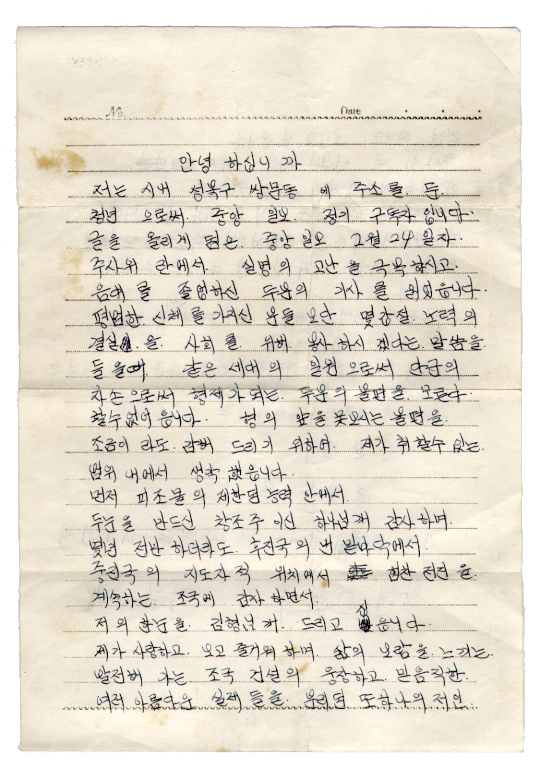 No. Date . . .
안녕 하십니까
저는 시내 성북구 쌍문동 에 주소를. 둔
청년 으로써. 중앙 일보. 정의 구독자 입니다.
글을 올리게 된은. 중앙일보 2월 24일자.
주사위 란에서. 실명의 고난을 극복하시고.
음대를 졸업하신 두분의 기사를 읽었읍니다.
평범한 신체를 가지신 분들 보단 몇갑절. 노력의
결실을. 사회를 위해 봉사 하시겠다는. 말씀을
들을때, 같은 세대의 일원으로써 단군의
자손으로써 형제가 되는. 두분의 불편을. 모른다
할수 없어읍니다. 형의 앞을 못보시는 불편을
조금이라도. 감해 드리기 위하여. 제가 취할수 있는.
범위 내에서 생각 했읍니다.
먼저 피조물의 제한된 능력 안에서
두눈을 만드신 창조주 이신 하나님게 감사하며.
몇년 전만 하더라도. 후진국의 맨 밑바닥에서.
중진국의 지도자적 위치에서 힘찬 전진을.
계속하는. 조국에 감사 하면서.
저의 한눈을. 김형님게. 드리고 십읍니다.
제가 사랑하고. 보고 즐거워 하며 삶의 보람을 느끼는.
발전해 가는 조국 건설의 웅장하고. 믿음직한.
여러 아름다운 실제들을. 우리던 또하나의 저인